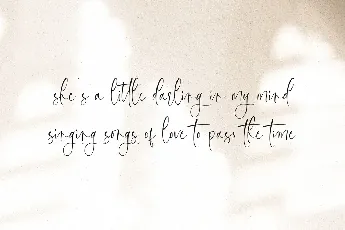 she's a little darling in my mind
singing songs of love to pass the time